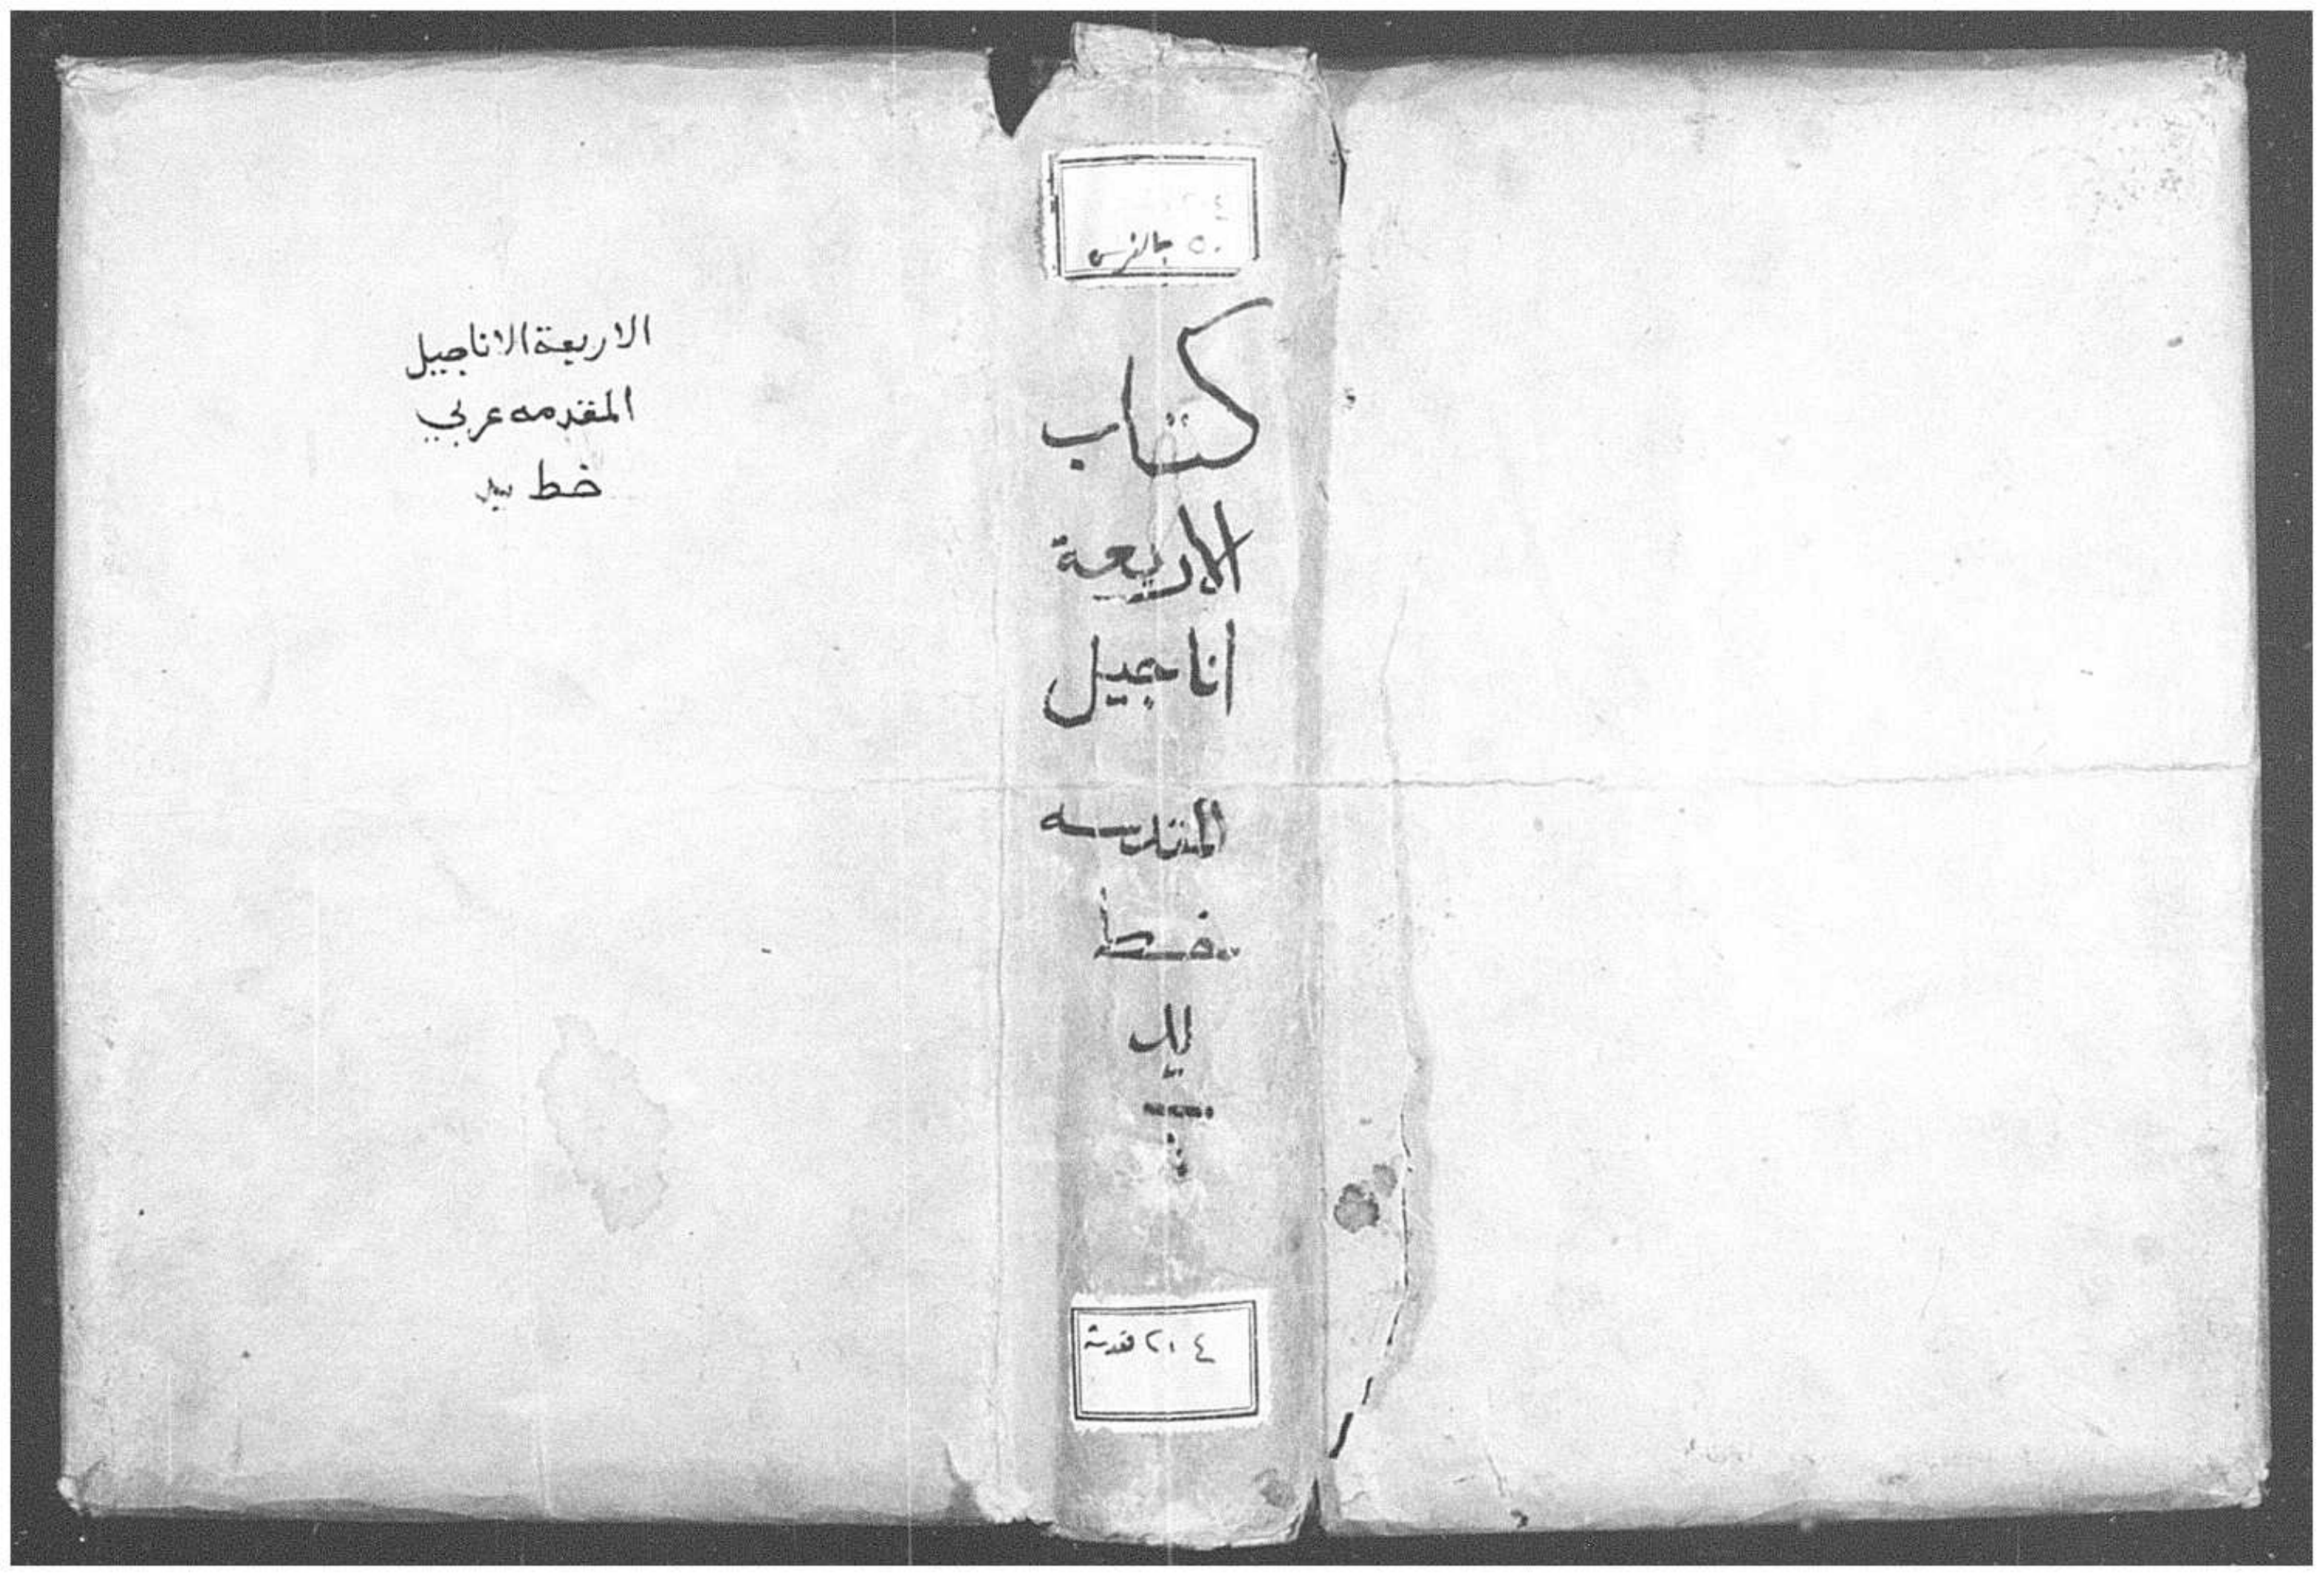 الاربعة الاناجيل
المقدمه عربي
خط يد
٥٠
كتاب
الاربعة
اناجيل
المقدسه
خط
يد
٢١٤ قدسة